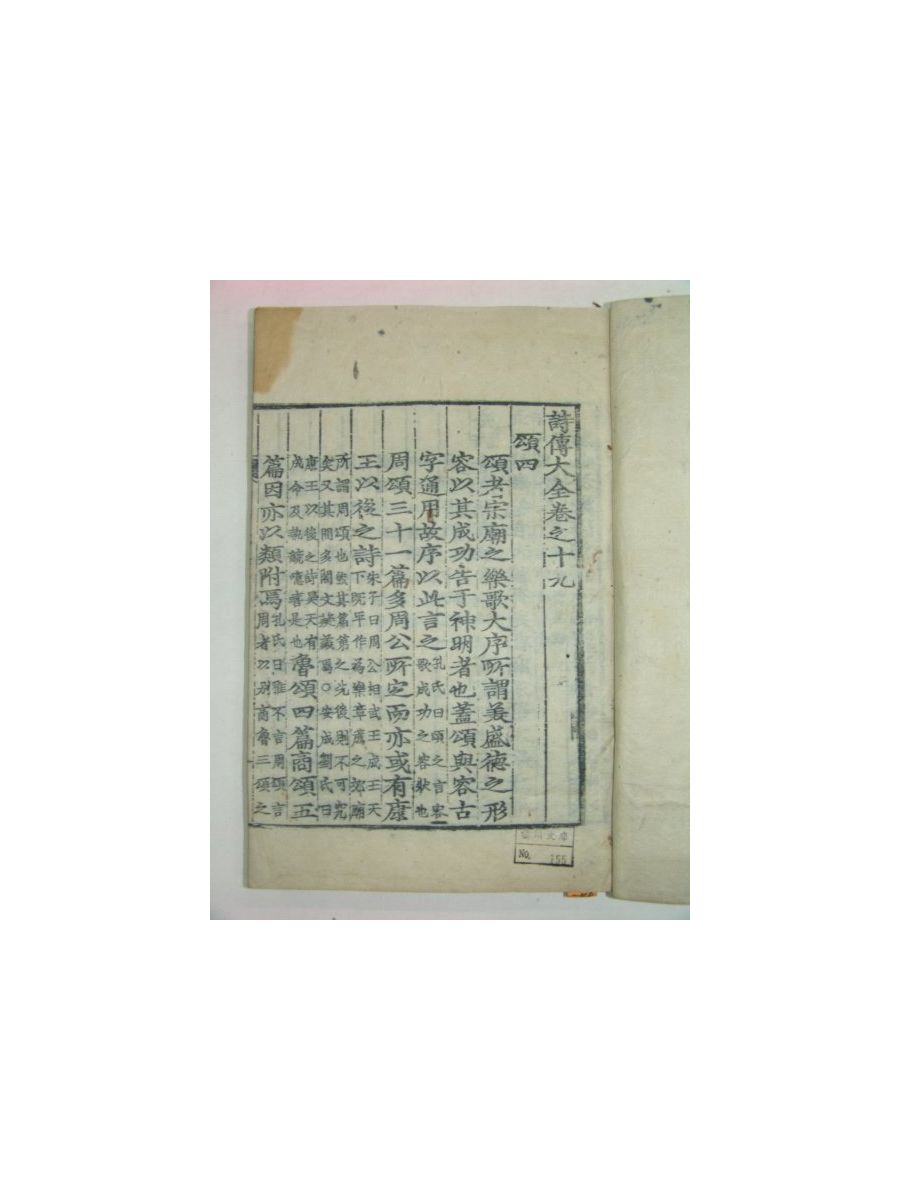 詩傳大全卷之十九
頌四
頌者宗廟之樂歌大序所謂美盛德之形
容以其成功告于神明者也蓋頌與容古
字通用故序以此言之孔氏曰頌之言容歌成功之容狀也
周頌三十一篇多周公所定而亦或有康
王以後之詩朱子曰周公相武王成王天下旣平作爲樂章薦之郊廟
所謂周頌也然其篇第之先後則不可究矣又其間多闕文疑義焉○安成劉氏曰
康王以後之詩昊天有成命及執競噫嘻是也魯頌四篇商頌五
篇因亦以類附焉孔氏曰雅不言周頌言周者以別商魯三頌之
No. 155